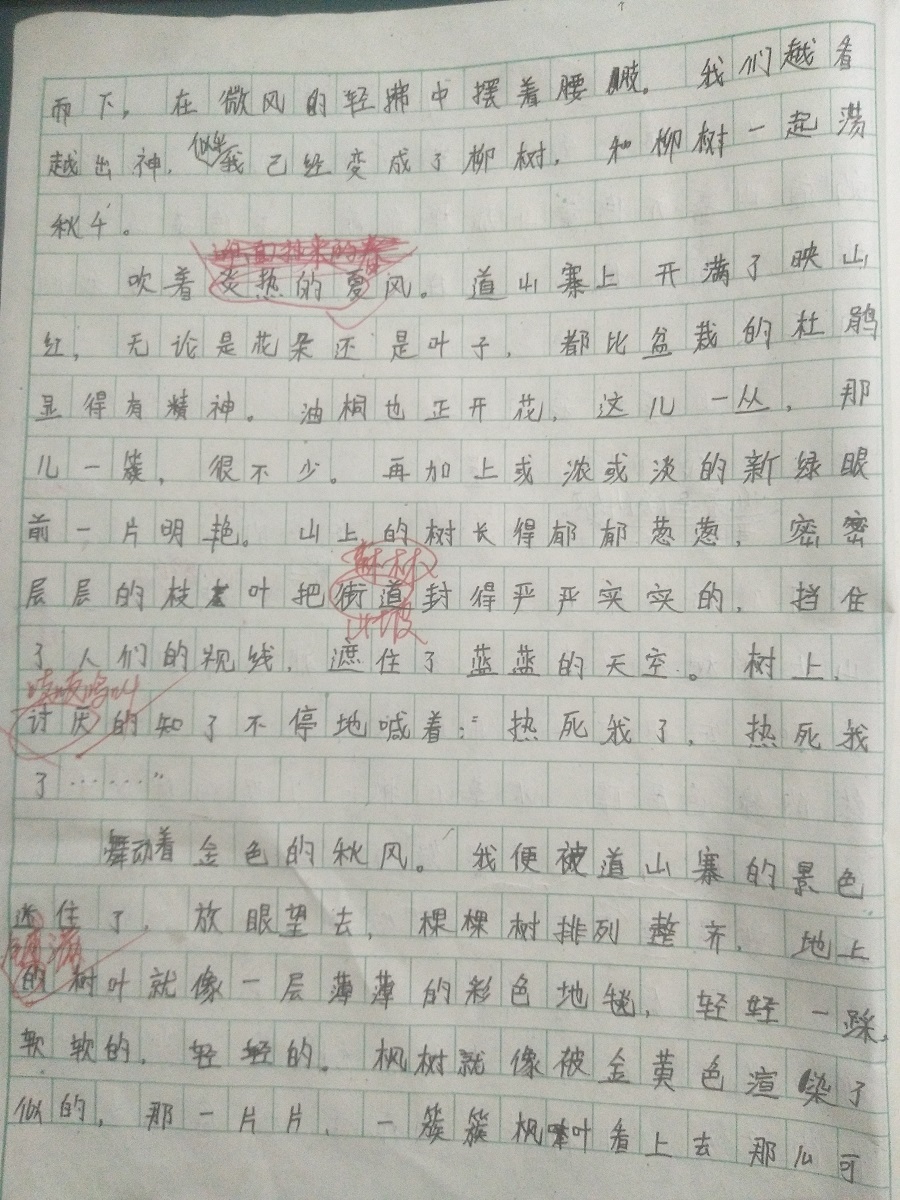 而下。在微风的轻拂中摆着腰肢。我们越看
越出神，似乎我已经变成了柳树，和柳树一起荡
秋千。
迎面扑来的春
吹着炎热的夏风。道山寨上开满了映山
红，无论是花朵还是叶子，都比盆栽的杜鹃
显得有精神。油桐也正开花，这儿一丛，那
儿一簇，很不少。再加上或浓或淡的新绿眼
前一片明艳。山上的树长得郁郁葱葱，密密
层层的枝叶把街道封得严严实实的，挡住
森林
山坡
了人们的视线，遮住了蓝蓝的天空。树上，
讨厌的知了不停地喊着：“热死我了，热死我
了……”
舞动着金色的秋风。我便被道山寨的景色
迷住了，放眼望去，棵棵树排列整齐，地上
的树叶就像一层薄薄的彩色地毯，轻轻一踩，
软软的，轻轻的。枫树就像被金黄色渲染了
似的，那一片片，一簇簇枫叶看上去那么可